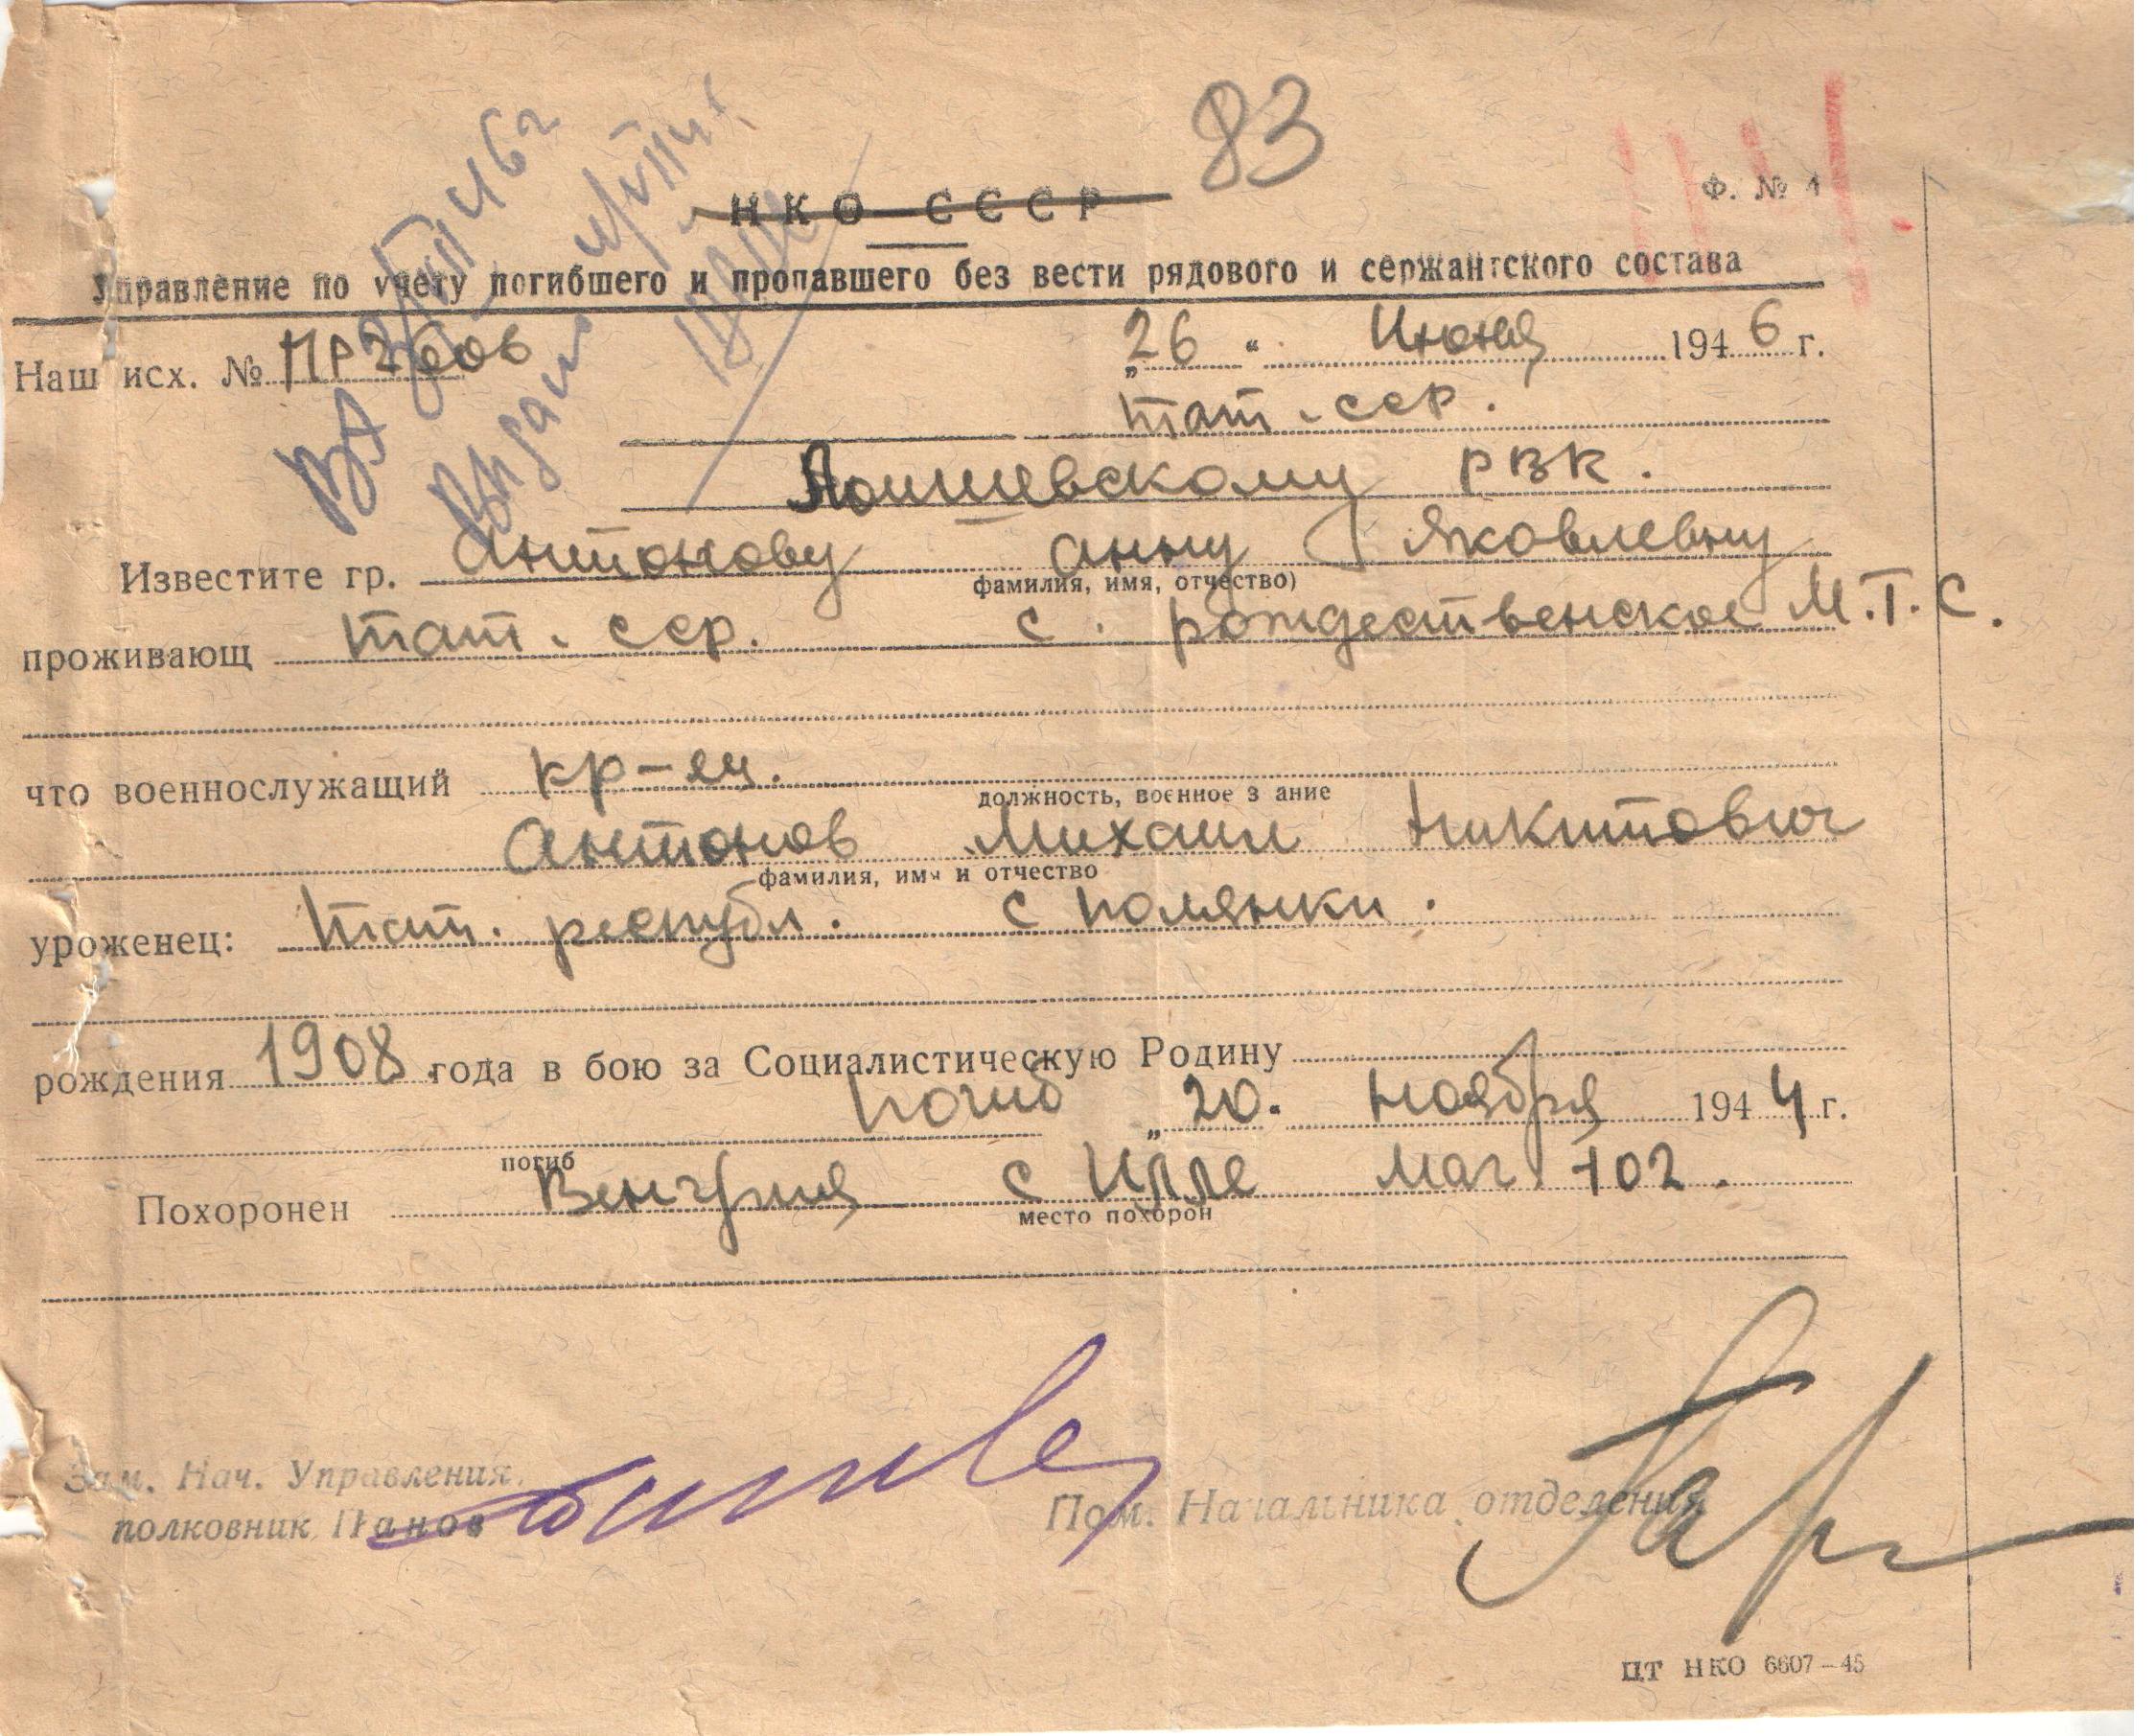 83
НКО СССР
Ф. № 1
Управление по учету погибшего и пропавшего без вести рядового и сержантского состава
Наш исх. № ПР 2606
„26“ Июня 1946 г.
тат. сср.
Лаишевскому РВК.
Известите гр. Антонову Анну Яковлевну
фамилия, имя, отчество)
проживающ тат. сср. с. рождественское М.Т.С.
что военнослужащий кр-ец.
должность, военное з ание
Антонов Михаил Никитович
фамилия, имя и отчество
уроженец: тат. республ. с полянки.
рождения 1908 года в бою за Социалистическую Родину
погиб „20. ноября 1944 г.
погиб
Похоронен Венгрия с Илле мог 102.
место похорон
Зам. Нач. Управления
полковник Панов
Пом. Начальника отделения
ЦТ НКО 6607—45